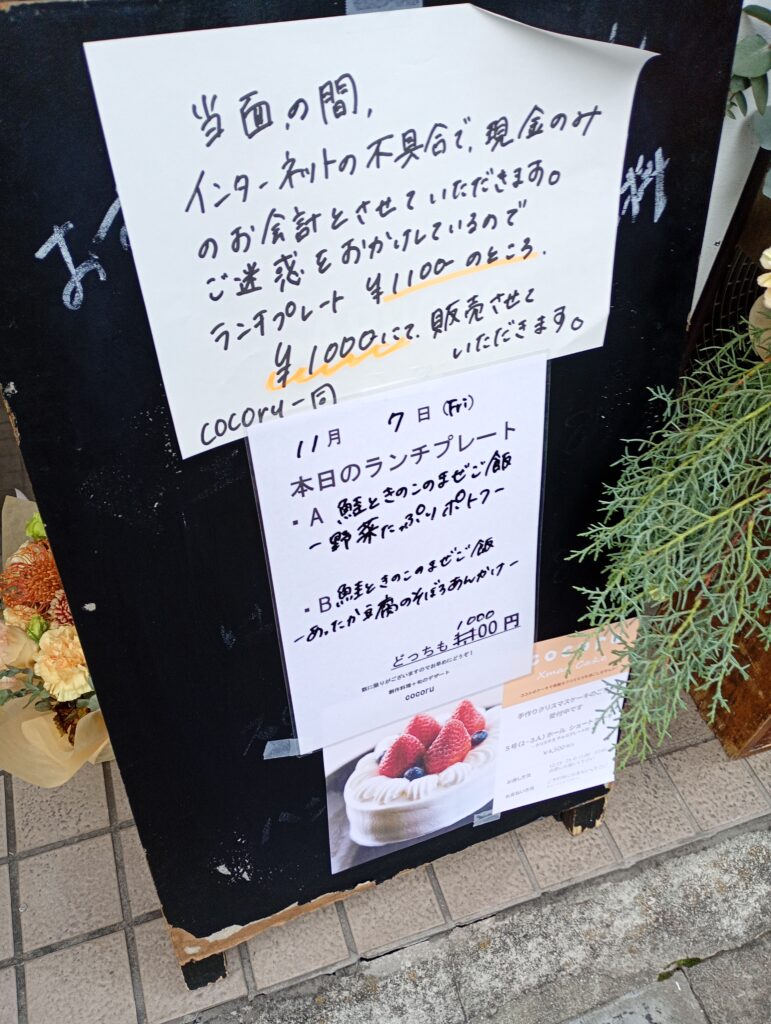 当面の間,
インターネットの不具合で,現金のみ
のお会計とさせていただきます。
ご迷惑をおかけしているので
ランチプレート ¥1100のところ,
¥1000にて,販売させて
いただきます。
cocoru一同
11月 7日(Fri)
本日のランチプレート
・A 鮭ときのこのまぜご飯
ー野菜たっぷりポトフー
・B 鮭ときのこのまぜご飯
ーあったか豆腐のそぼろあんかけー
1000
どっちも 1100円
数に限りがございますのでお早めにどうぞ!
創作料理+旬のデザート
cocoru
cocoru
Xmas Cake
手作りクリスマスケーキのご予約
受付中です
5号(2-3人)ホール ショート
¥4,500
お渡し方法
お支払い方法
お
料